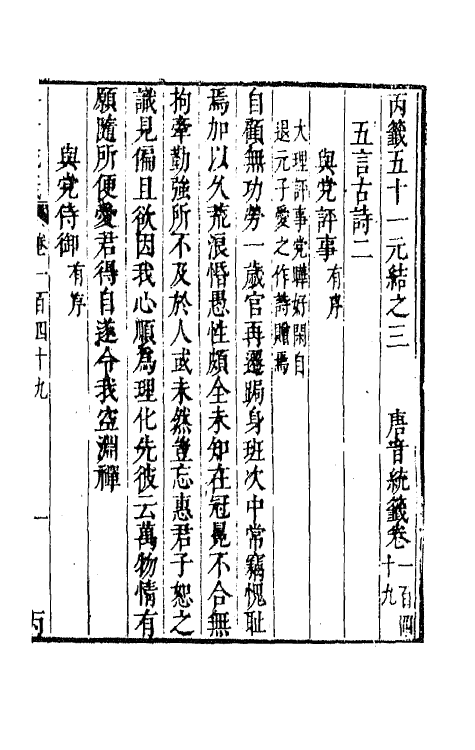 丙籤五十一元結之三　唐音統籤卷一百四十九
五言古詩二
與党評事有序
大理評事党曄好閑自
退元子愛之作詩贈焉
自顧無功勞一歲官再遷跼身班次中常竊愧耻
焉加以久荒浪惛愚性頗全未知在冠冕不合無
拘牽勤強所不及於人或未然豈忘惠君子恕之
識見偏且欲因我心順為理化先彼云萬物情有
願隨所便愛君得自遂令我空淵禪
與党侍御有序
卷一百四十九
一
丙